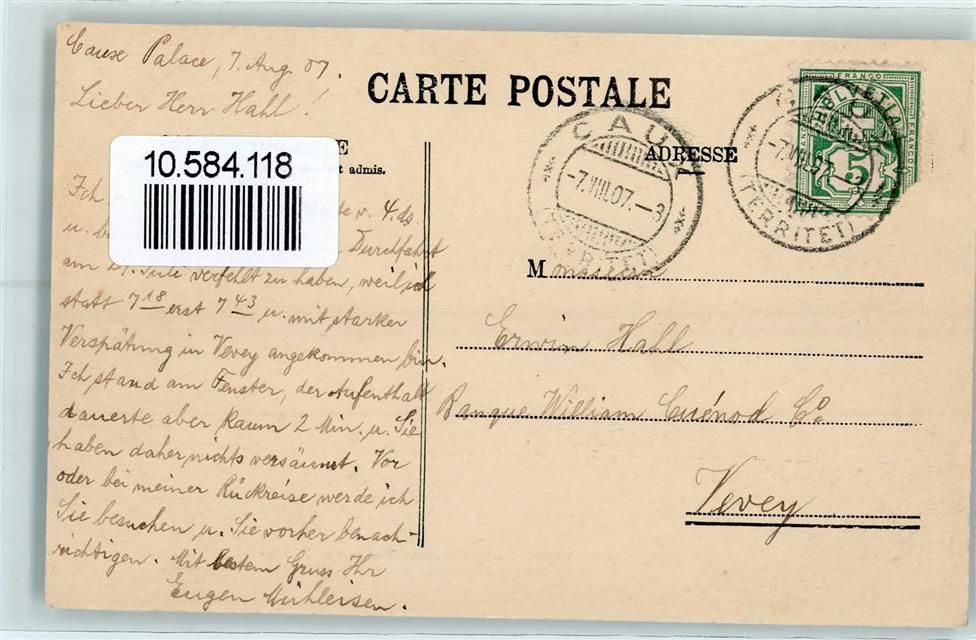 Caux Palace, 7. Aug. 07.
Lieber Herr Hahl!
CARTE POSTALE
10.584.118
t admis.
ADRESSE
CAUX
-7.VIII.07.-3
(TERRITET)
CAUX
-7.VIII.07.-3
(TERRITET)
FRANCO
HELVETIA
FRANCO
5
Ich v. 4. ds
u. Durchfahrt
am 29. Juli verfehlt zu haben, weil ich
statt 7 18 erst 7 43 u. mit starker
Verspätung in Vevey angekommen bin.
Ich stand am Fenster, der Aufenthalt
dauerte aber kaum 2 Min. u. Sie
haben daher nichts versäumt. Vor
oder bei meiner Rückreise werde ich
Sie besuchen u. Sie vorher benach-
richtigen. Mit bestem Gruss Ihr
Eugen Mühleisen.
Monsieur
Erwin Hahl
Banque William Cuénod Co
Vevey